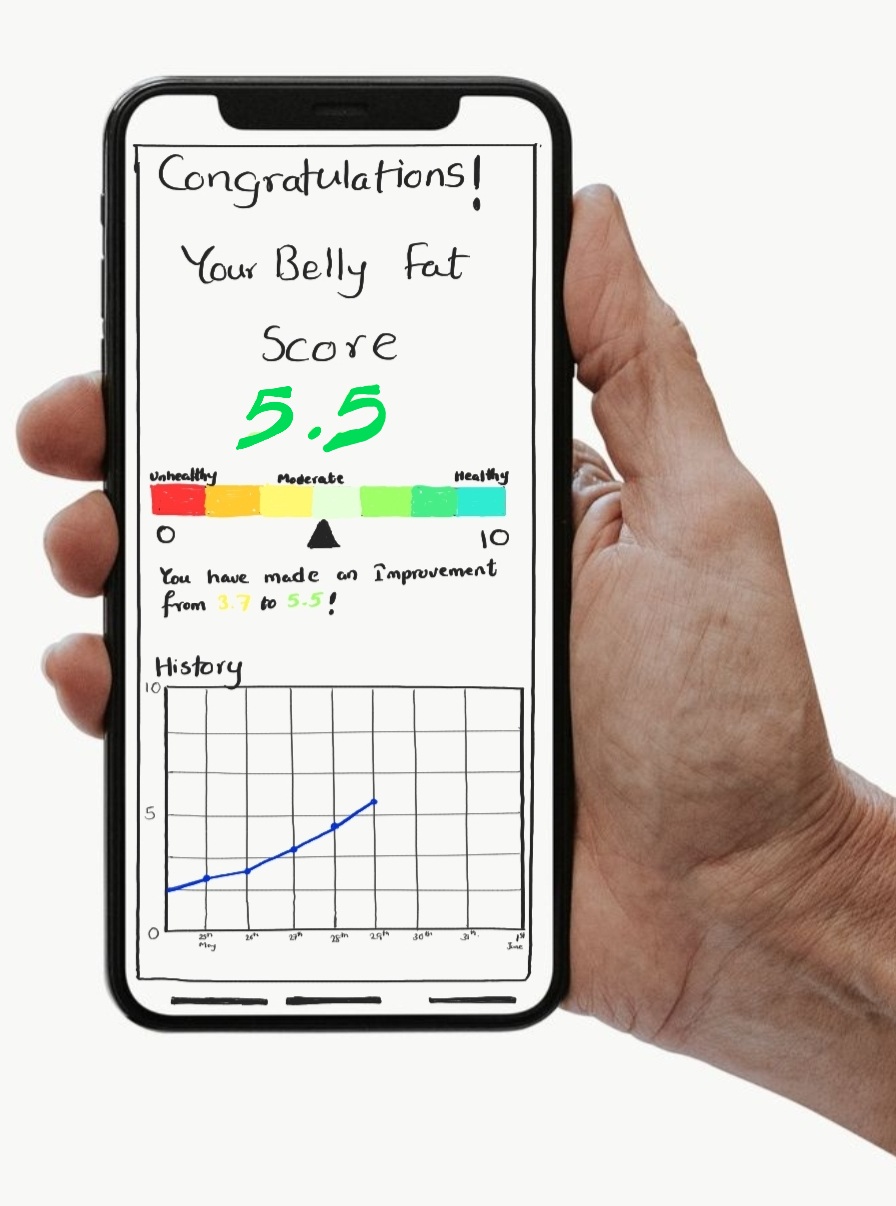 Congratulations!
Your Belly Fat
Score
5.5
Unhealthy Moderate Healthy
0 10
You have made an Improvement
from 3.7 to 5.5!
History
10
5
0
25th 26th 27th 28th 29th 30th 31st 1st
May June